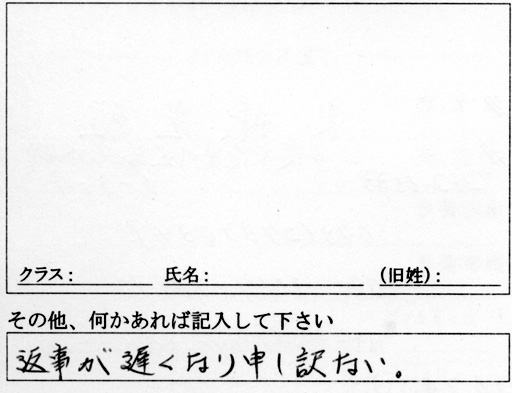 クラス： 氏名： （旧姓）：
その他、何かあれば記入して下さい
返事が遅くなり申し訳ない。